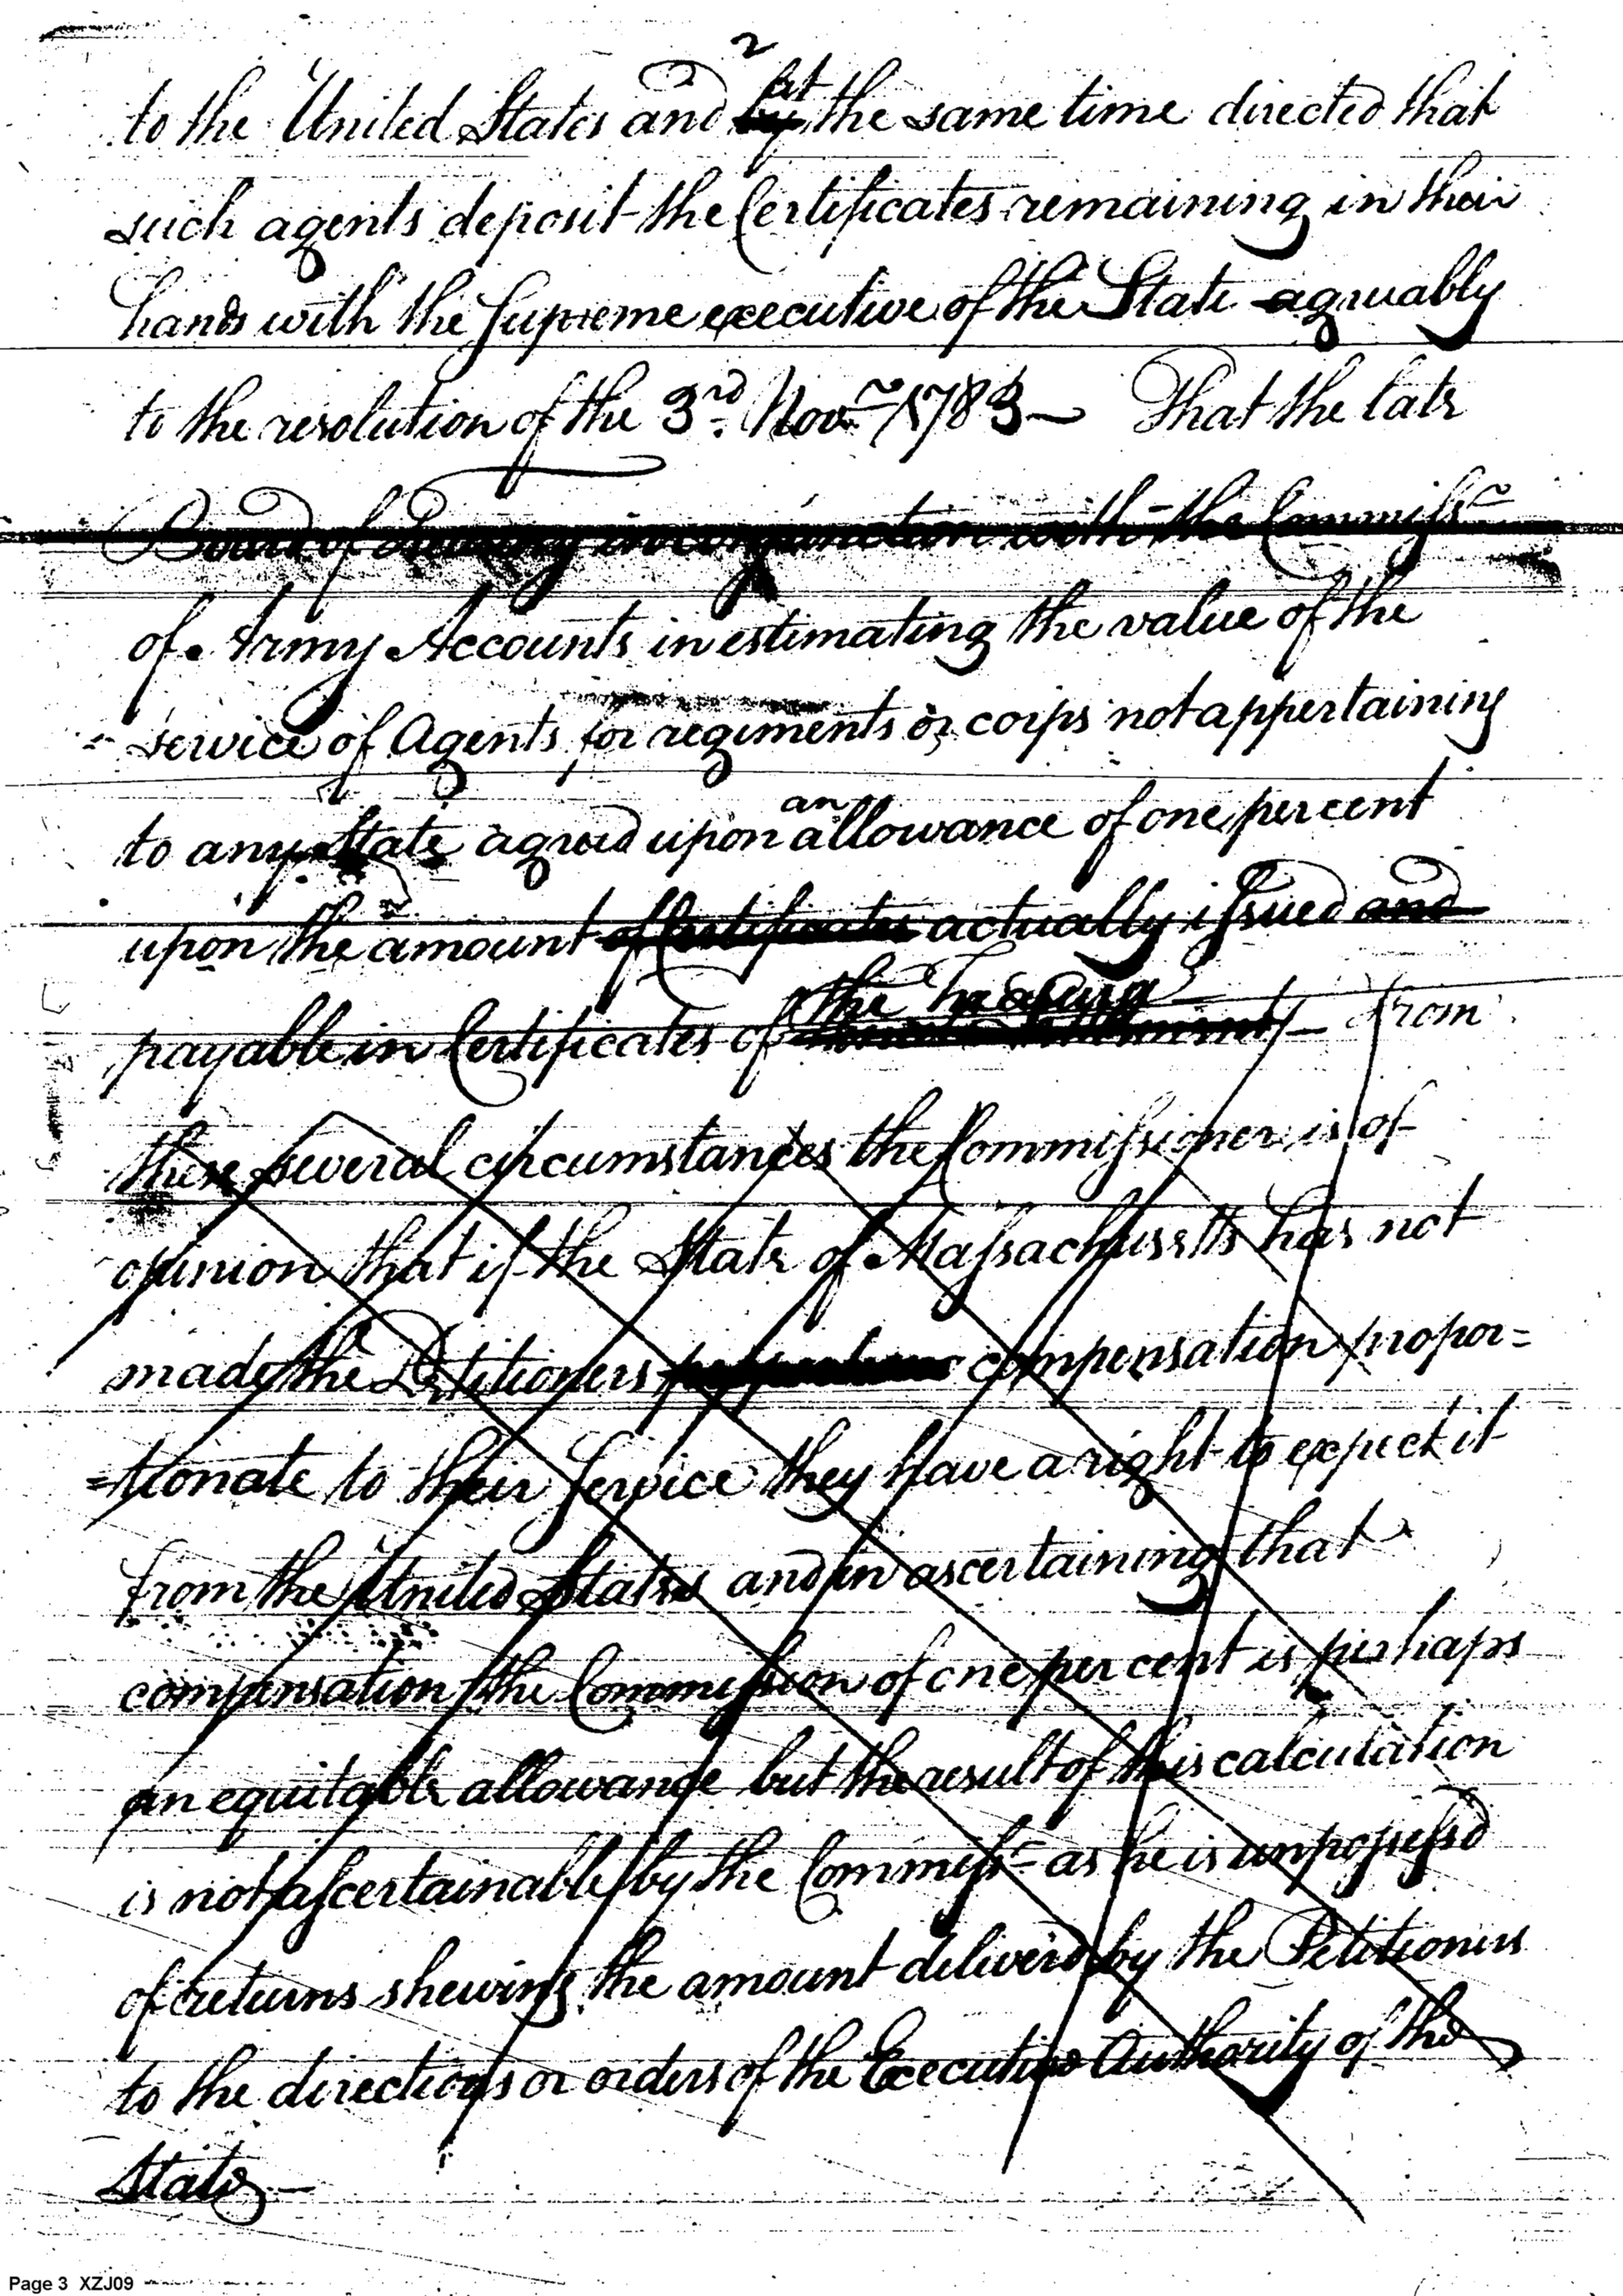 2
to the United States and by at the same time directed that
such agents deposit the Certificates remaining in their
hands with the Supreme executive of the State agreeably
to the resolution of the 3rd. Novr 1783 — That the late
Board of Treasury in conjunction with the Commissr
of Army Accounts in estimating the value of the
service of Agents for regiments or corps not appertaining
to any State agreed upon an allowance of one per cent
upon the amount of Certificates actually issued and
payable in Certificates of the Treasury — From
these several circumstances the Commissioner is of
opinion that if the State of Massachusetts has not
made the Petitioners compensation propor=
=tionate to their Service they have a right to expect it
from the United States and in ascertaining that
compensation the Commission of one per cent is perhaps
an equitable allowance but the result of this calculation
is not ascertainable by the Commissr as he is unpossessd
of returns shewing the amount deliverd by the Petitioners
to the directions or orders of the Executive Authority of the
State —
Page 3 XZJ09